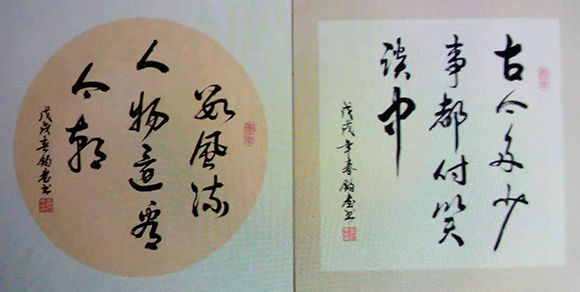 數風流
人物還看
今朝
戊戌春
古今多少
事都付笑
談中
戊戌年春